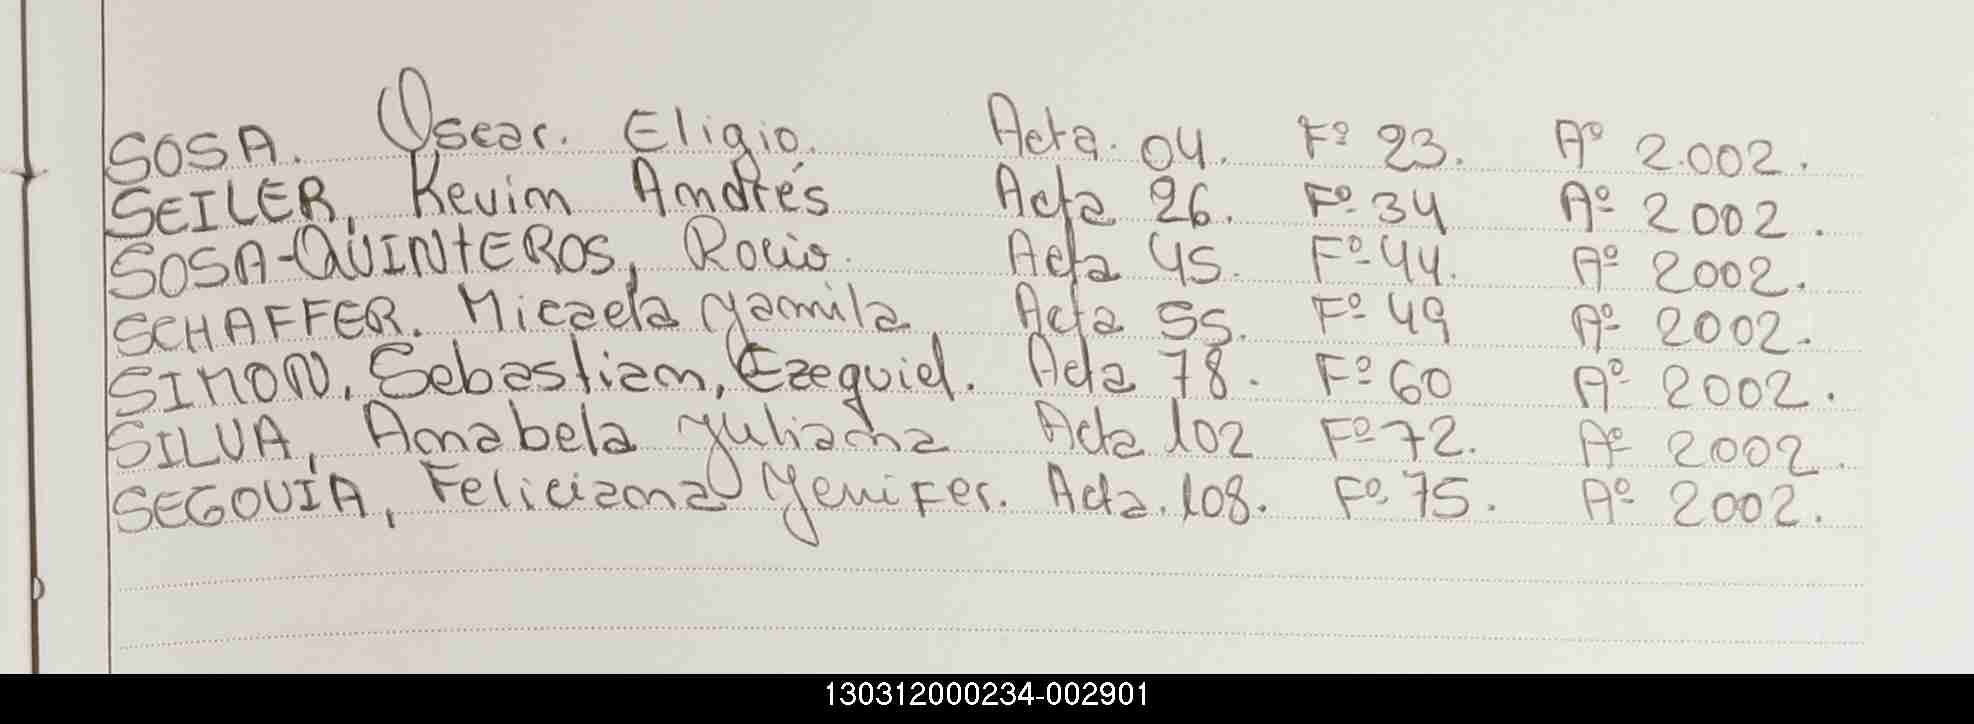 SOSA. Oscar. Eligio. Acta. 04. Fº 23. Aº 2.002.
SEILER, Kevin Andrés Acta 26. Fº 34 Aº 2002.
SOSA-QUINTEROS, Rocio. Acta 45. Fº 44. Aº 2002.
SCHAFFER. Micaela Yamila Acta 55. Fº 49 Aº 2002.
SIMON, Sebastian, Ezequiel. Acta 78. Fº 60 Aº 2002.
SILVA, Anabela Yuliana Acta 102 Fº 72. Aº 2002.
SEGOVIA, Feliciana Yenifer. Acta. 108. Fº 75. Aº 2002.
130312000234-002901